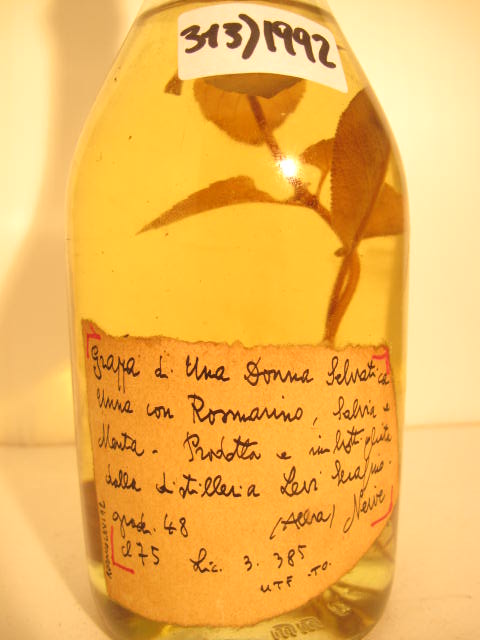 313)1992
Grappa di Una Donna Selvatica
unna con Rosmarino, Salvia e
Menta - Prodotta e imbottigliata
dalla distilleria Levi Serafino.
gradi 48 (Alba) Neive
cl 75 Lic. 3. 385
UTF -TO.